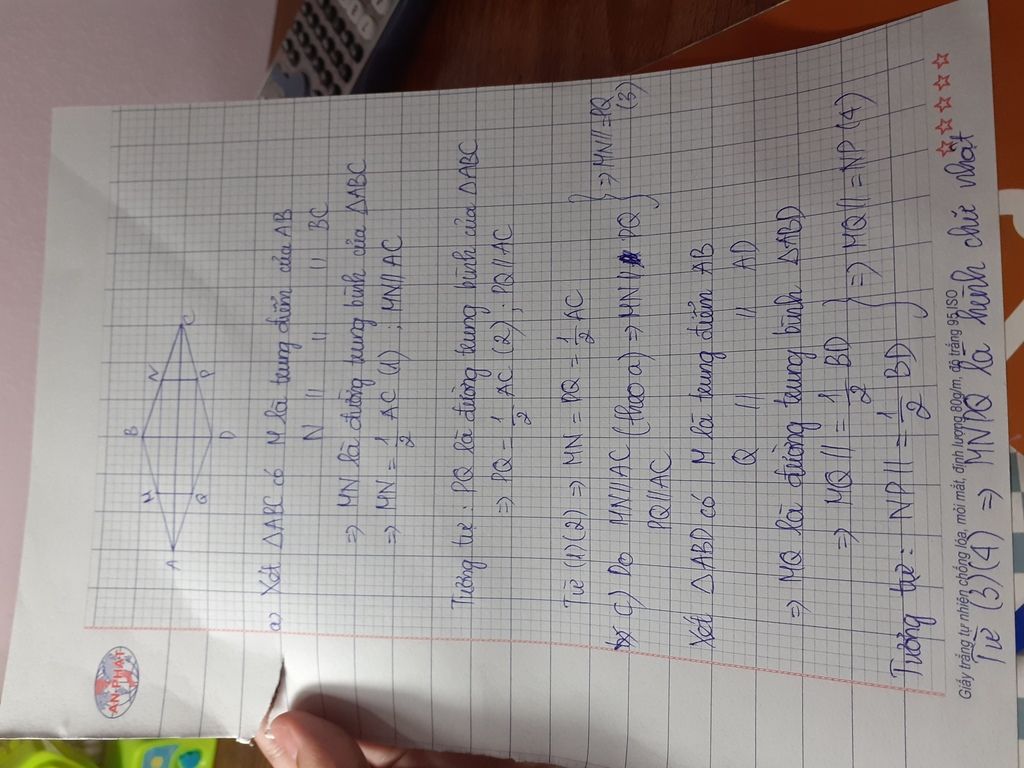 AN-PHAT
B
M
N
A
C
Q
P
D
a) Xét △ABC có M là trung điểm của AB
N " " " BC
=> MN là đường trung bình của △ABC
=> MN = 1/2 AC (1) ; MN // AC
Tương tự : PQ là đường trung bình của △ABC
=> PQ = 1/2 AC (2) ; PQ // AC
Từ (1) (2) => MN = PQ = 1/2 AC
c) Do MN // AC (theo a) => MN // PQ } => MN // = PQ (3)
PQ // AC
Xét △ABD có M là trung điểm AB
Q " " AD
=> MQ là đường trung bình △ABD
=> MQ // = 1/2 BD } => MQ // = NP (4)
Tương tự : NP // = 1/2 BD
Giấy trắng tự nhiên chống lóa, mỏi mắt, định lượng 80g/m, độ trắng 95 ISO
Từ (3) (4) => MNPQ là hình chữ nhật